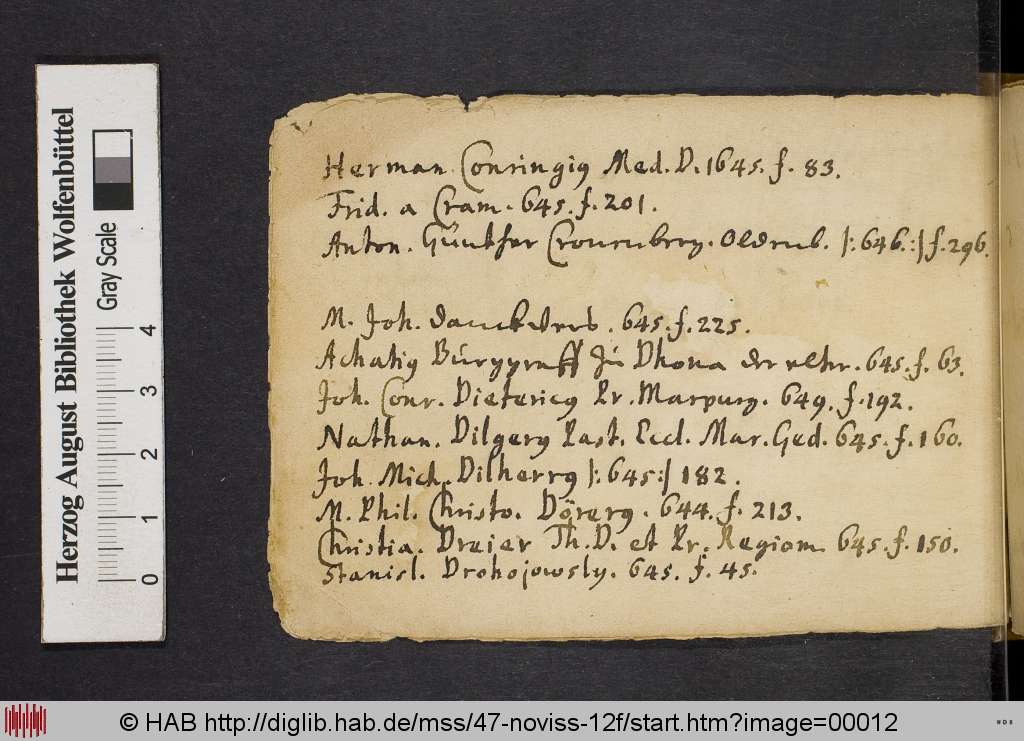 Herman Conringiꝰ Med. D. 1645. f. 83.
Frid. a Cram. 645. f. 201.
Anton. Günther Cronenberg. Oldenb. |: 646. :| f. 296.
M. Joh. 645. f. 225.
Achatiꝰ Burggraff zu Dhona der elter. 645. f. 63.
Joh. Conr. Dietericꝰ Pr. Marpurg. 649. f. 192.
Nathan. Dilgerꝰ Past. Eccl. Mar. Ged. 645. f. 160.
Joh. Mich. Dilherrꝰ |: 645 :| 182.
M. Phil. Christo. Dörerꝰ. 644. f. 213.
Christia. Dreier Th. D. et Pr. Regiom. 645. f. 150.
Stanisl. Drohojowsky. 645. f. 45.
Herzog August Bibliothek Wolfenbüttel
Gray Scale
0 1 2 3 4
© HAB http://diglib.hab.de/mss/47-noviss-12f/start.htm?image=00012